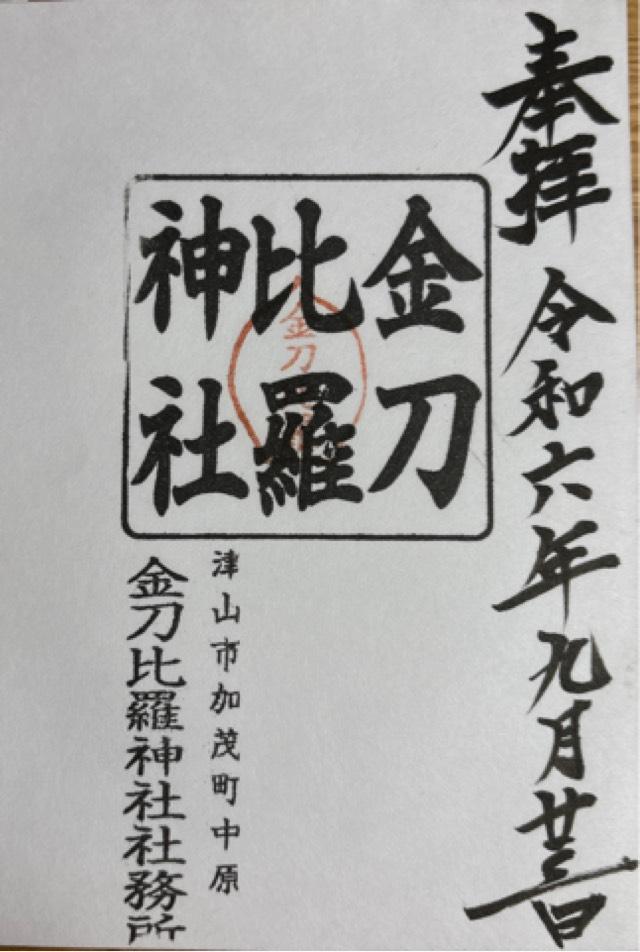 奉拝 令和六年九月廿三日
金刀
比羅
神社
金刀
津山市加茂町中原
金刀比羅神社社務所